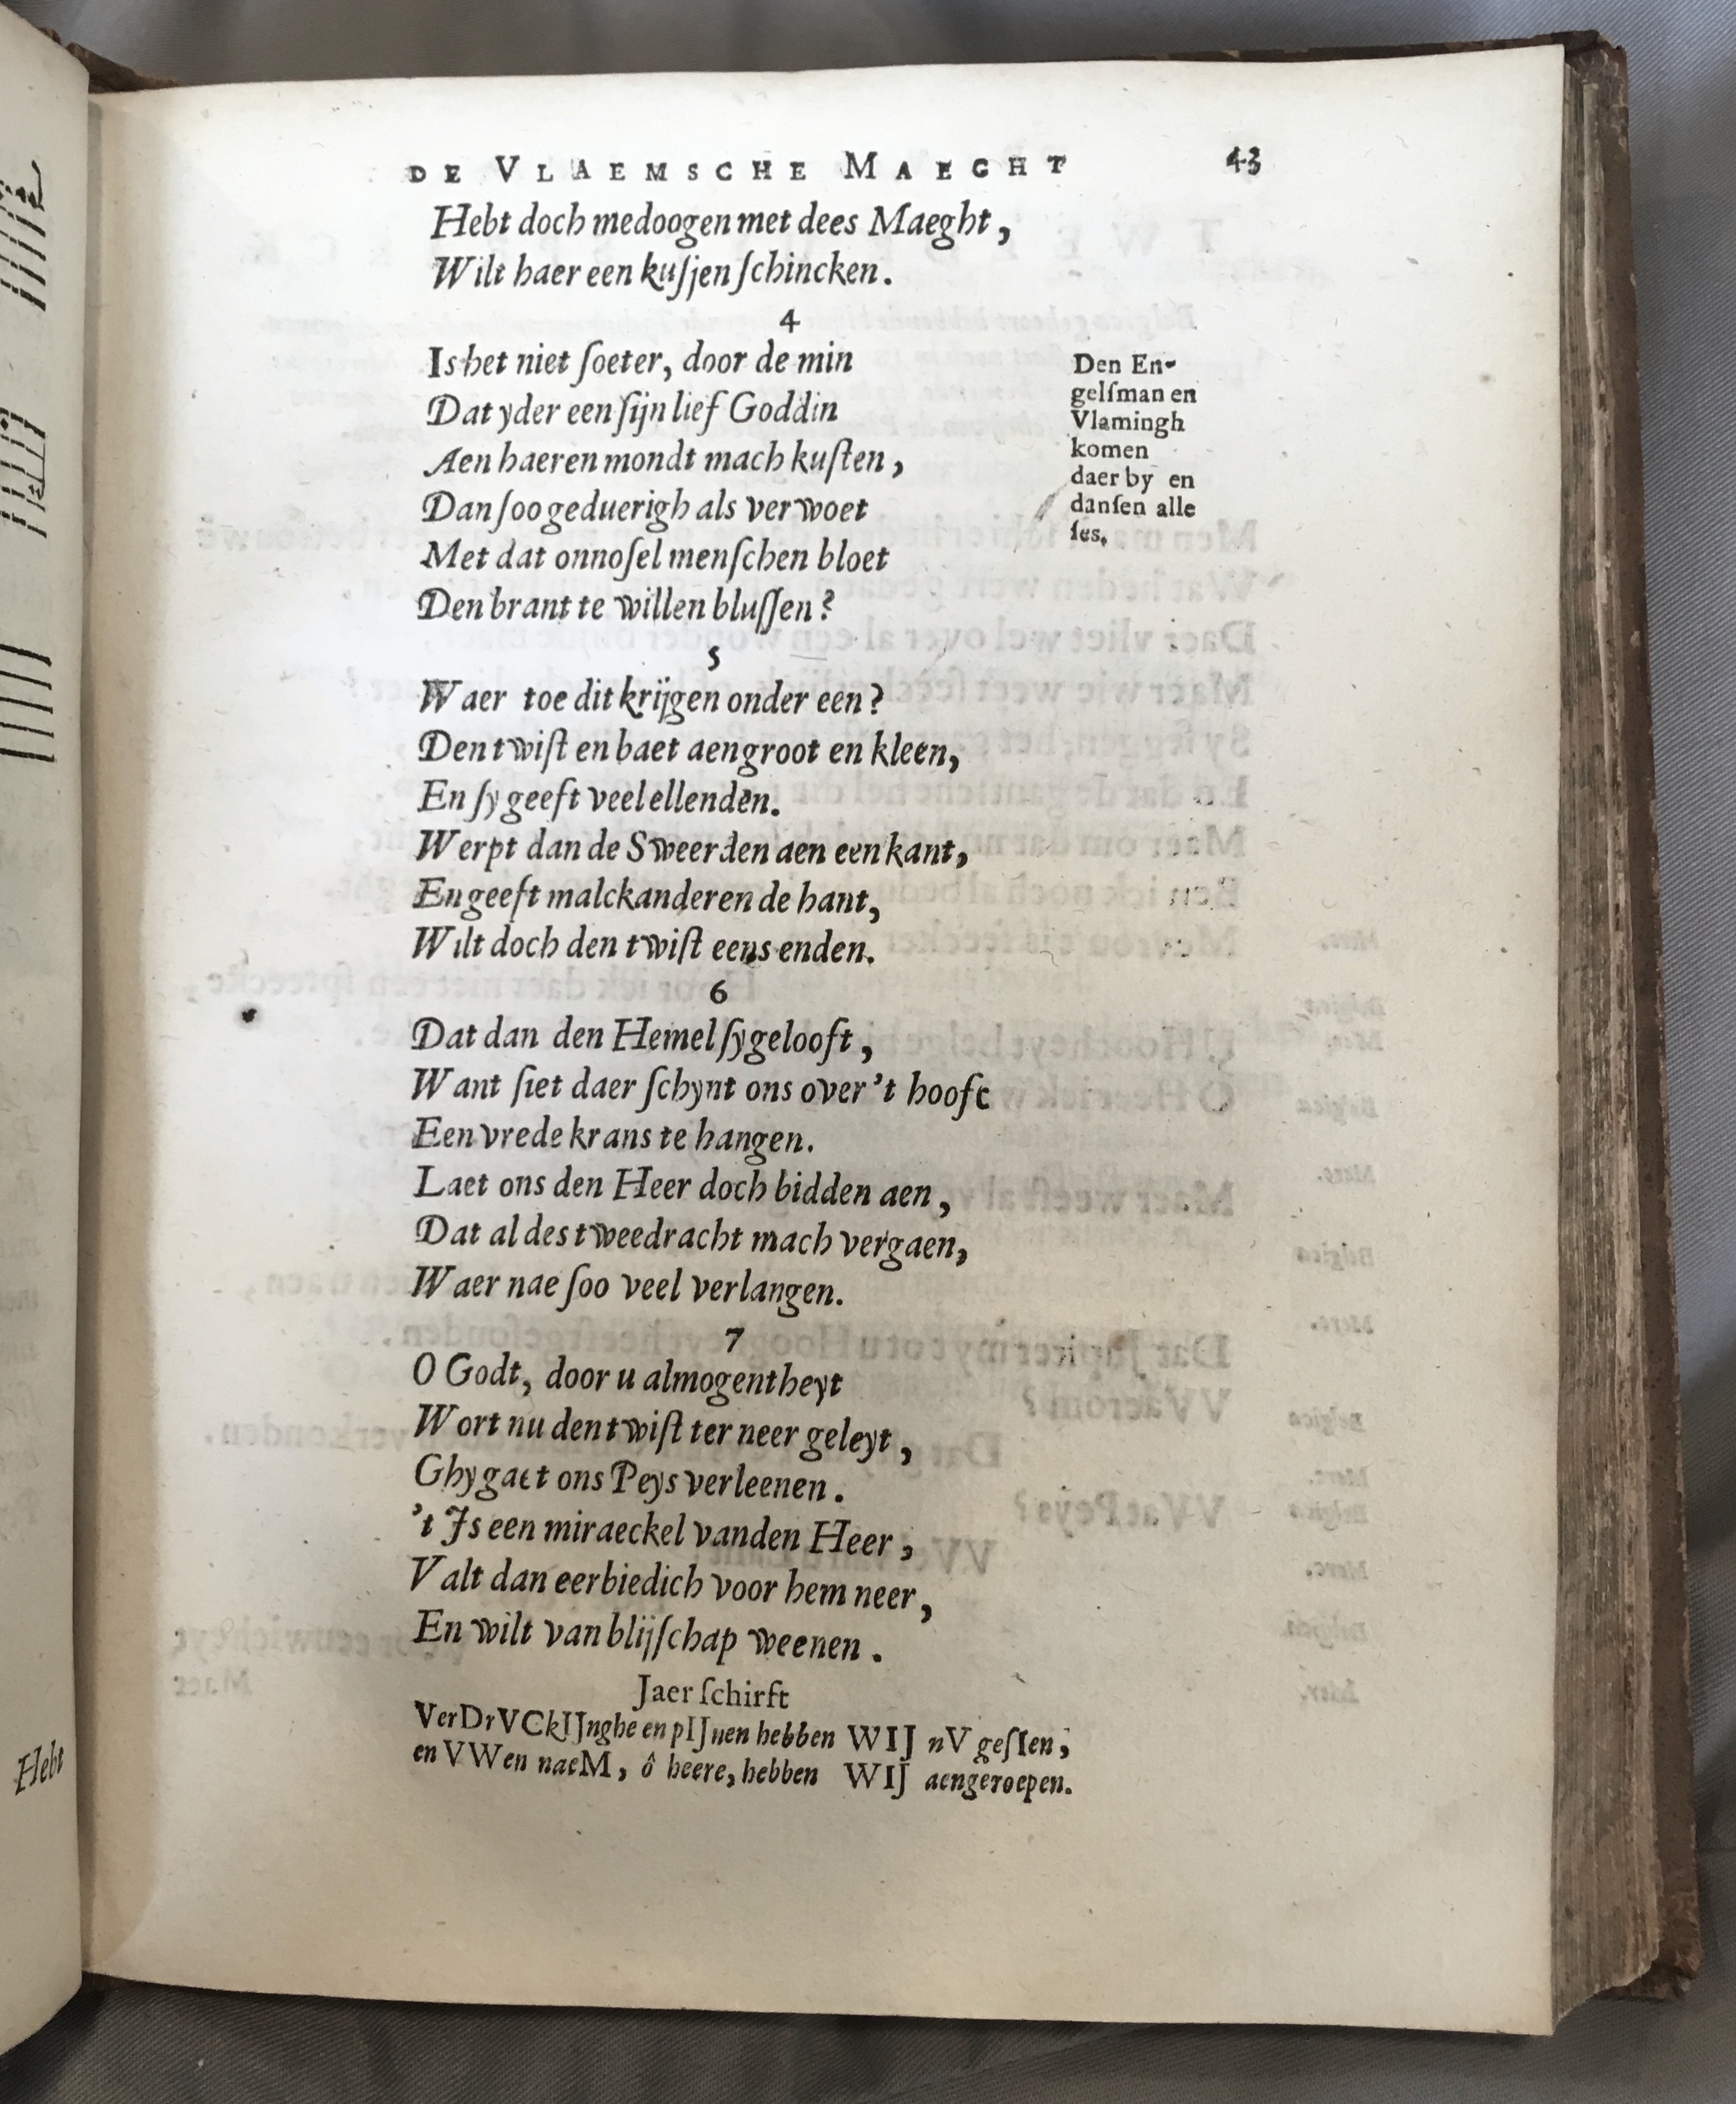 DE VLAEMSCHE MAEGHT 43
Hebt doch medoogen met dees Maeght,
Wilt haer een kusjen ſchincken.
4
Is het niet ſoeter, door de min
Dat yder een ſijn lief Goddin
Aen haeren mondt mach kuſten,
Dan ſoo geduerigh als verwoet
Met dat onnoſel menſchen bloet
Den brant te willen bluſſen?
Den En-
gelſman en
Vlamingh
komen
daer by en
danſen alle
ſes.
5
Waer toe dit krijgen onder een?
Den twiſt en baet aen groot en kleen,
En ſy geeft veel ellenden.
Werpt dan de Sweerden aen een kant,
En geeft malckanderen de hant,
Wilt doch den twiſt eens enden.
6
Dat dan den Hemel ſy gelooft,
Want ſiet daer ſchynt ons over't hooft
Een vrede krans te hangen.
Laet ons den Heer doch bidden aen,
Dat al des tweedracht mach vergaen,
Waer nae ſoo veel verlangen.
7
O Godt, door u almogentheyt
Wort nu den twiſt ter neer geleyt,
Ghy gaet ons Peys verleenen.
't Is een miraeckel vanden Heer,
Valt dan eerbiedich voor hem neer,
En wilt van blijſchap weenen.
Jaer ſchirft
VerDrVCkIJnghe en pIJnen hebben WIJ nV geſIen,
en VWen naeM, ô heere, hebben WIJ aengeroepen.
Hebt